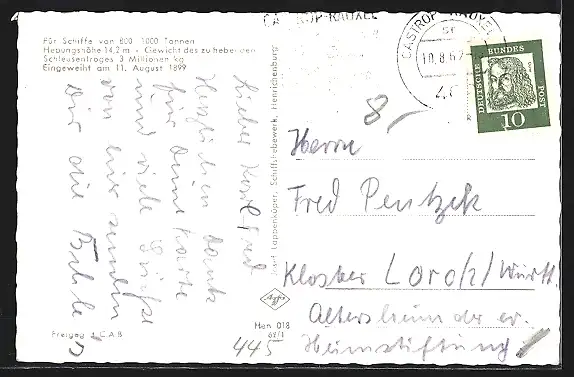 Für Schiffe von 600 - 1000 Tonnen
Hebungshöhe 14,2 m - Gewicht des zu hebenden
Schleusentroges 3 Millionen kg
Eingeweiht am 11. August 1899
Lieber Karlfred
Herzlichen Dank
für Deine Karte
und viele Grüße
von hier senden
Dir die
Freigng. 1 CAB
Josef Tappenköper, Schiffshebewerk, Henrichenburg
Agfa
Hen 018
62/1
445
CASTROP-RAUXEL
CASTROP-RAUXEL
10.8.62
DEUTSCHE BUNDESPOST
10
8,-
Herrn
Fred Pentzek
Kloster Lorch/Württ.
Altersheim der ev.
Heimstiftung